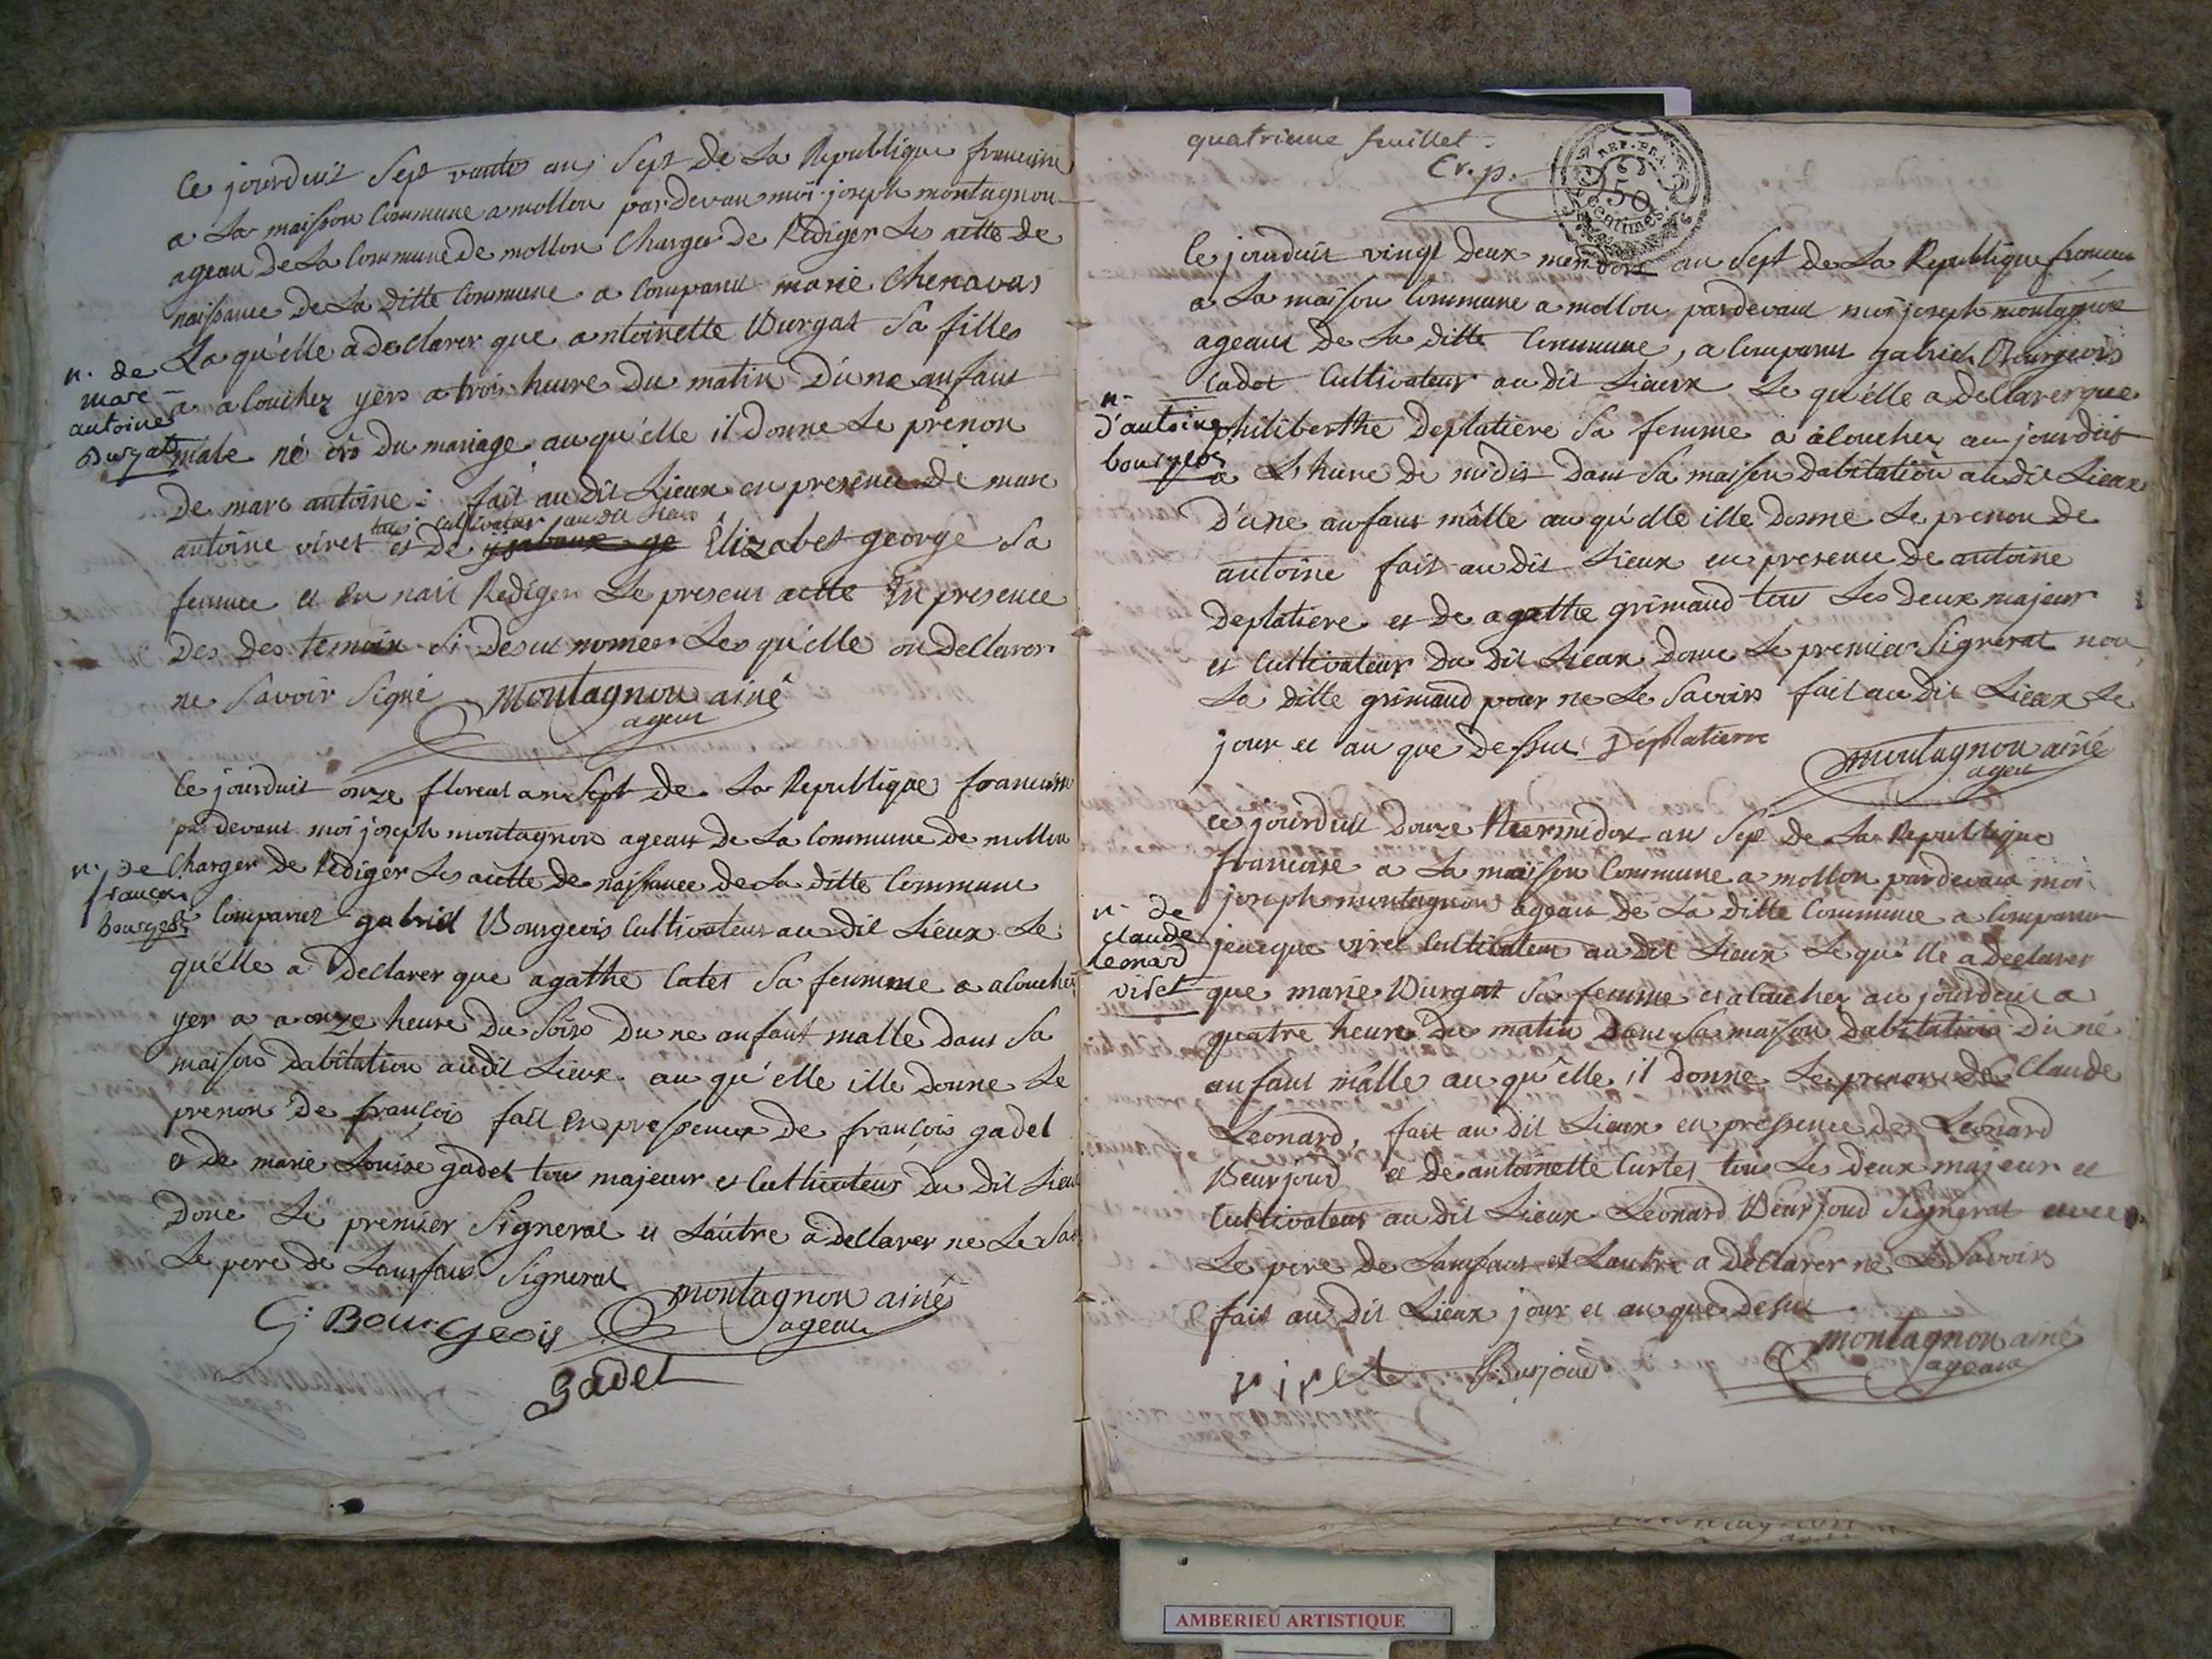 Ce jourduit Sept vante an Sept de La Republique francaise
a La maison Commune a mollon pardevan moi joseph montagnon
agean De La Commune de mollon Charger De Rediger Les actte de
naissance De La ditte Commune a Comparut marie Chenavas
La qu'elle a declarer que antoinette Durgat Sa filles
n. de
marc
antoine
Durgat
a alouchez yers a trois heure Du matin D'une anfant
male né oro Du mariage auqu'elle il Donne Le prenon
De marc antoine : fait au dit Lieux en presence De marc
tous Cultivateur au dit Lieux
antoine viret et De Elizabet george Sa
femme et en nait Rediger Le presens actte En presence
Des Des temoin Si Desus nomer Les qu'elle on Declarer
ne Savoir Signé montagnon ainé
agean
Ce jourduit onze floreal an Sept de La Republique francaise
par devant moi joseph montagnon agean de La Commune de mollon
n. De
francois
bourgeois
Charger de Rediger Les actte de naissance de La ditte Commune
a Comparuz gabriel Bourgeois Cultivateur au dit Lieux Le
qu'elle a Declarer que agathe Cates Sa femme a alouchez
yer a a onze heure Du Soirs Du ne anfant malle Dans Sa
maisons Dabitation audit Lieux auqu'elle ille Donne Le
prenon De françois fait en pressence De françois gadel
et De marie Louise gadel tous majeur et Cultivateur Du Dit Lieux
Donc Le premier Signeral et L'autre a Declarer ne Le Sav
Le pere de Lanfans Signeral montagnon ainé
agean
G: BourGeois
Gadel
quatrieme feuillet.
Cr. p.
REP. FRA.
50
centimes.
Ce jourduit vingt Deux mesidore an Sept de La Republique francaise
a La maison Commune a mollon pardevant moi joseph montagnon
ageant De La ditte Commune, a Comparut gabriel Bourgeois
Cadet Cultivateur au dit Lieux Le qu'elle a Declarer que
n.
d'antoine
bourgeois
philiberthe Deplatiere Sa femme a alouchez au jourduit
a L'hure de midis Dans Sa maison Dabitation au dit Lieux
D'une anfant mâlle auqu'elle ille Donne Le prenon De
antoine fait au dit Lieux en presence De antoine
Deplatiere et De agathe grimaud tous Les Deux majeur
et Cultivateur Du dit Lieux Donc Le premier Signerat non
La ditte grimaud pour ne Le Savoirs fait au dit Lieux Le
jour et an que Dessus Déplatiere
montagnon ainé
agean
Ce jourduit Douze thermidor an Sept De La Republique
francaise a La maison Commune a mollon pardevant moi
n. De
Claude
Leonard
viret
joseph montagnon agean De La ditte Commune a Comparut
jeacque viret Cultivateur au dit Lieux Lequ'lle a Declarer
que marie Durgat Sa femme et alouchez au jourduit a
quatre heure Du matin Dans Sa maison Dabitation Du ne
anfant mâlle auqu'elle il Donne Le prenon De Claude
Leonard, fait au dit Lieux en pressence de Leonard
Beurjoud et De antoinette Curtes tous Les Deux majeur et
Cultivateur au dit Lieux Leonard Beurjoud Signerat avec
Le pere de Lanfant et Lautre a Declarer ne Le Savoirs
fait au dit Lieux jour et an que desus
montagnon ainé
agean
viret Burjoud
AMBERIEU ARTISTIQUE